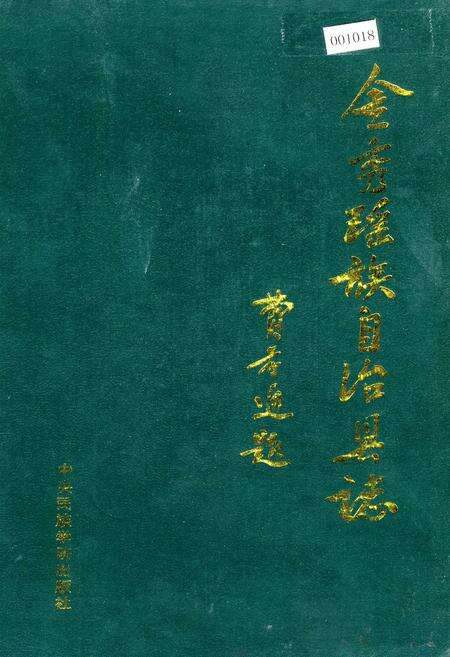 001018
金秀瑶族自治县誌
费孝通题
中央民族学院出版社